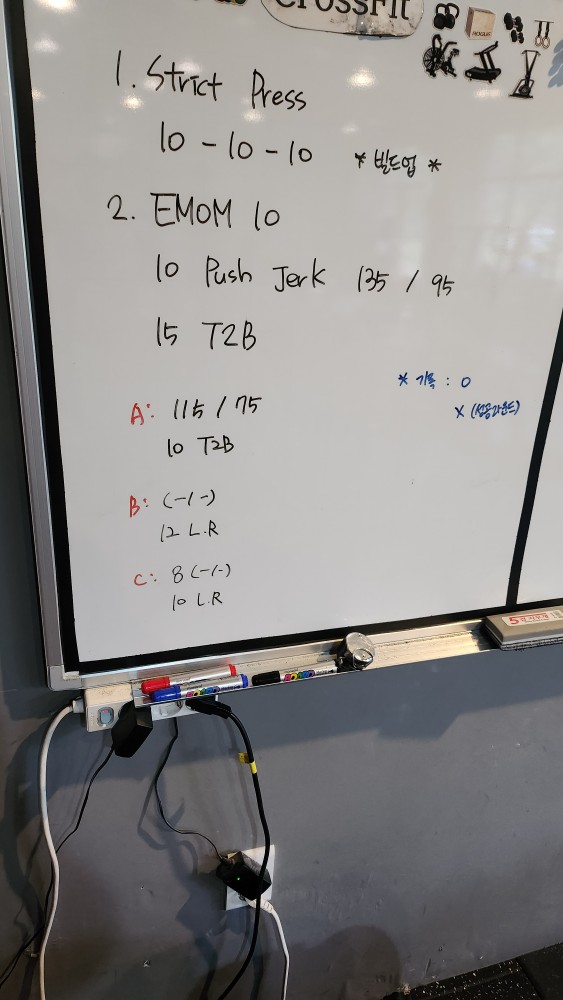 CrossFit
1. Strict Press
10 - 10 - 10 * 빌드업 *
2. EMOM 10
10 Push Jerk 135 / 95
15 T2B
* 기록 : O
X (성공라운드)
A: 115 / 75
10 T2B
B: (-/-)
12 L.R
C: 8 (-/-)
10 L.R